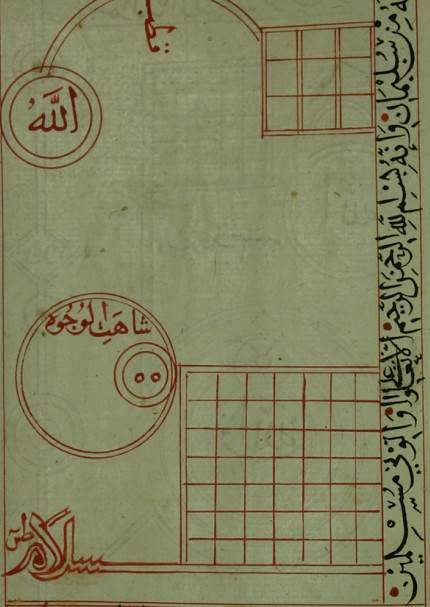 الله
شَاهَتِ الْوُجُوهُ
سلام
مِنْ سُلَيْمَانَ وَإِنَّهُ بِسْمِ اللَّهِ الرَّحْمَنِ الرَّحِيمِ أَلَّا تَعْلُوا عَلَيَّ وَأْتُونِي مُسْلِمِينَ